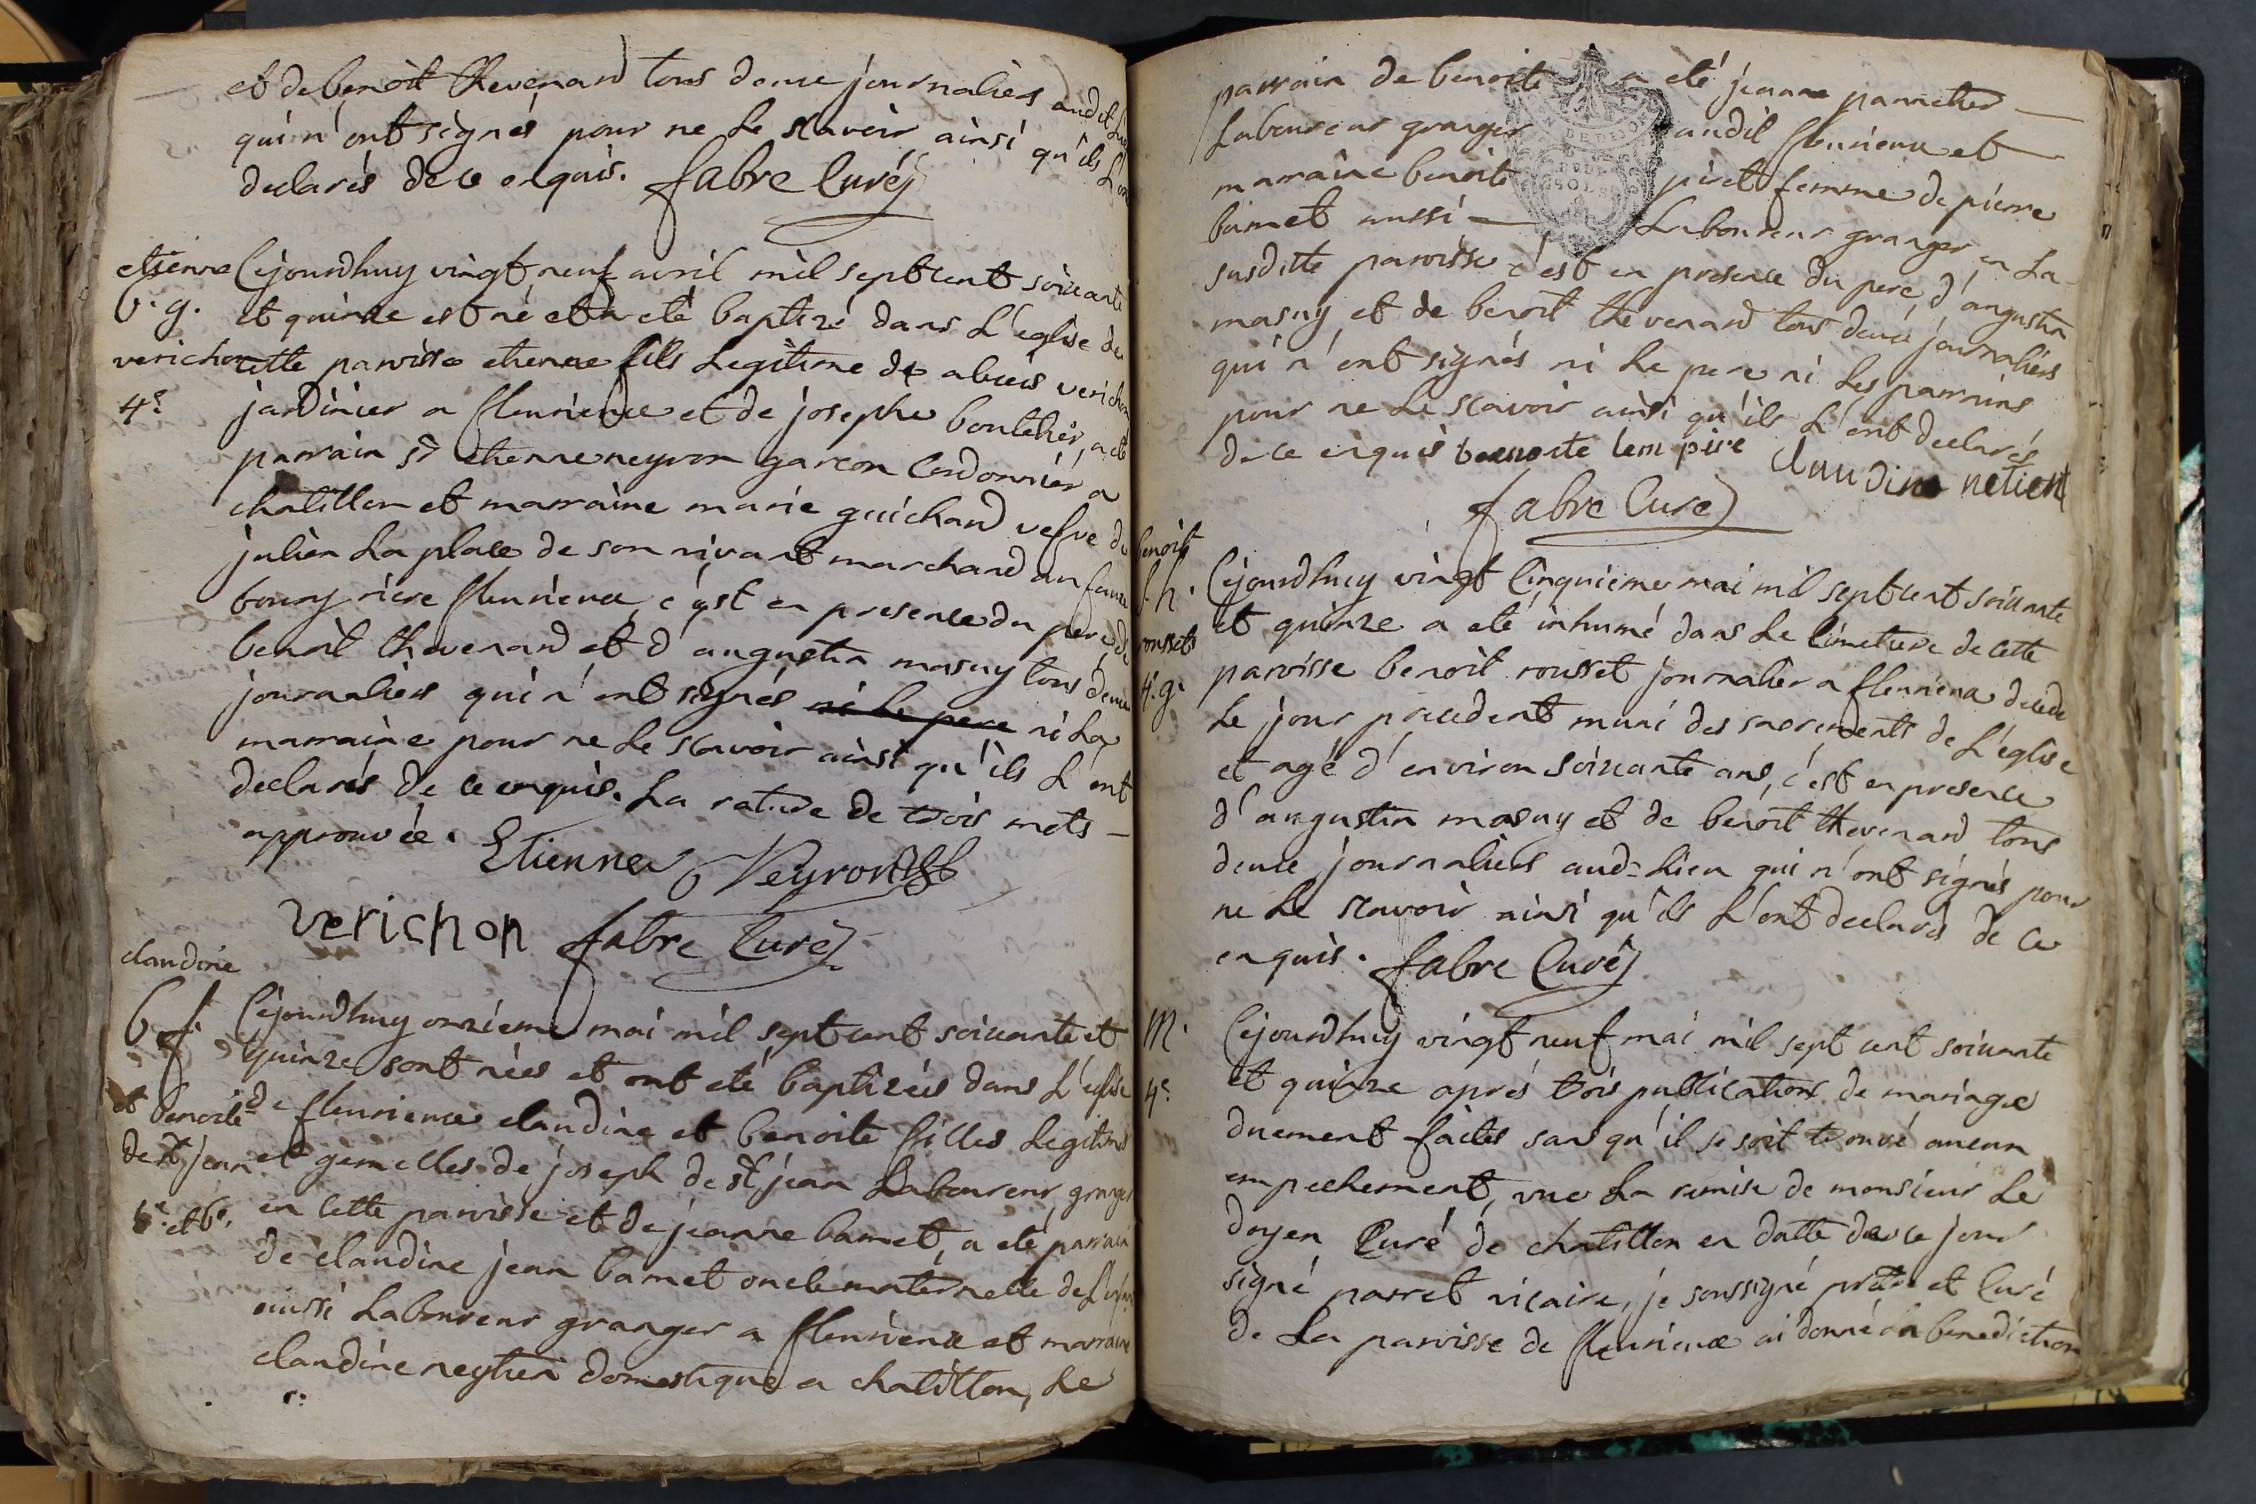 et de benoit thevenard tous deux journaliers audit lieu
qui n'ont signés pour ne le scavoir ainsi qu'ils l'ont
declarés de ce enquis. fabre Curé
etienne
b. g.
verichon
4e
Cejourdhuy vingt neuf avril mil sept cent soixante
et quinze est né et a eté baptizé dans l'eglise de
cette paroisse etienne fils legitime de alexis verichon
jardinier a fleurieux et de josephe bouteher, a eté
parrain sr etienne neyron garcon Cordonnier a
chatillon et marraine marie guichard vefve de
julien la place de son vivant marchand au faux
bourg riere fleurieux, c'est en presence du pere, de
benoit thevenard et d'augustin masuy tous deux
journaliers qui n'ont signés ni le pere ni la
marraine pour ne le scavoir ainsi qu'ils l'ont
declarés de ce enquis. la rature de trois mots –
approuvée. Etienne Neyron
verichon fabre Curé
claudine
b f.
et benoite
de st jean
5e et 6e.
Cejourdhuy onzieme mai mil sept cent soixante et
quinze sont nées et ont eté baptizées dans l'eglise
de fleurieux claudine et benoite filles legitimes
et gemelles de joseph de st jean laboureur granger
en cette paroisse et de jeanne bamet, a eté parrain
de claudine jean bamet oncle maternelle de l'enfant
aussi laboureur granger a fleurieux et marraine
claudine neytien domestique a chatillon, le
parrain de benoite a eté jeanne pannetier
laboureur granger audit fleurieux et
marraine benoite piret femme de pierre
bamet aussi – laboureur granger en la
susditte paroisse c'est en presence du pere, d'augustin
masuy et de benoit thevenard tous deux journaliers
qui n'ont signés ni le pere ni les parrains
pour ne le scavoir ainsi qu'ils l'ont declarés
de ce enquis benoite lem pire Claudine netient
fabre Curé
benoit
s. h.
rousset
4e. g.
Cejourdhuy vingt Cinquieme mai mil sept cent soixante
et quinze a eté inhumé dans le Cimetiere de cette
paroisse benoit rousset journalier a fleurieux decedé
le jour precedent muni des sacrements de l'eglise
et agé d'environ soixante ans, c'est en presence
d'augustin masuy et de benoit thevenard tous
deux journaliers aud. lieu qui n'ont signés pour
ne le scavoir ainsi qu'ils l'ont declarés de ce
enquis. fabre Curé
M.
4e
Cejourdhuy vingt neuf mai mil sept cent soixante
et quinze aprés trois publications de mariage
duement faites sans qu'il se soit trouvé aucun
empechement, vue la remise de monsieur le
doyen Curé de chatillon en datte de ce jour
signé parret vicaire, je soussigné prêtre et Curé
de la paroisse de fleurieux ai donné la benediction